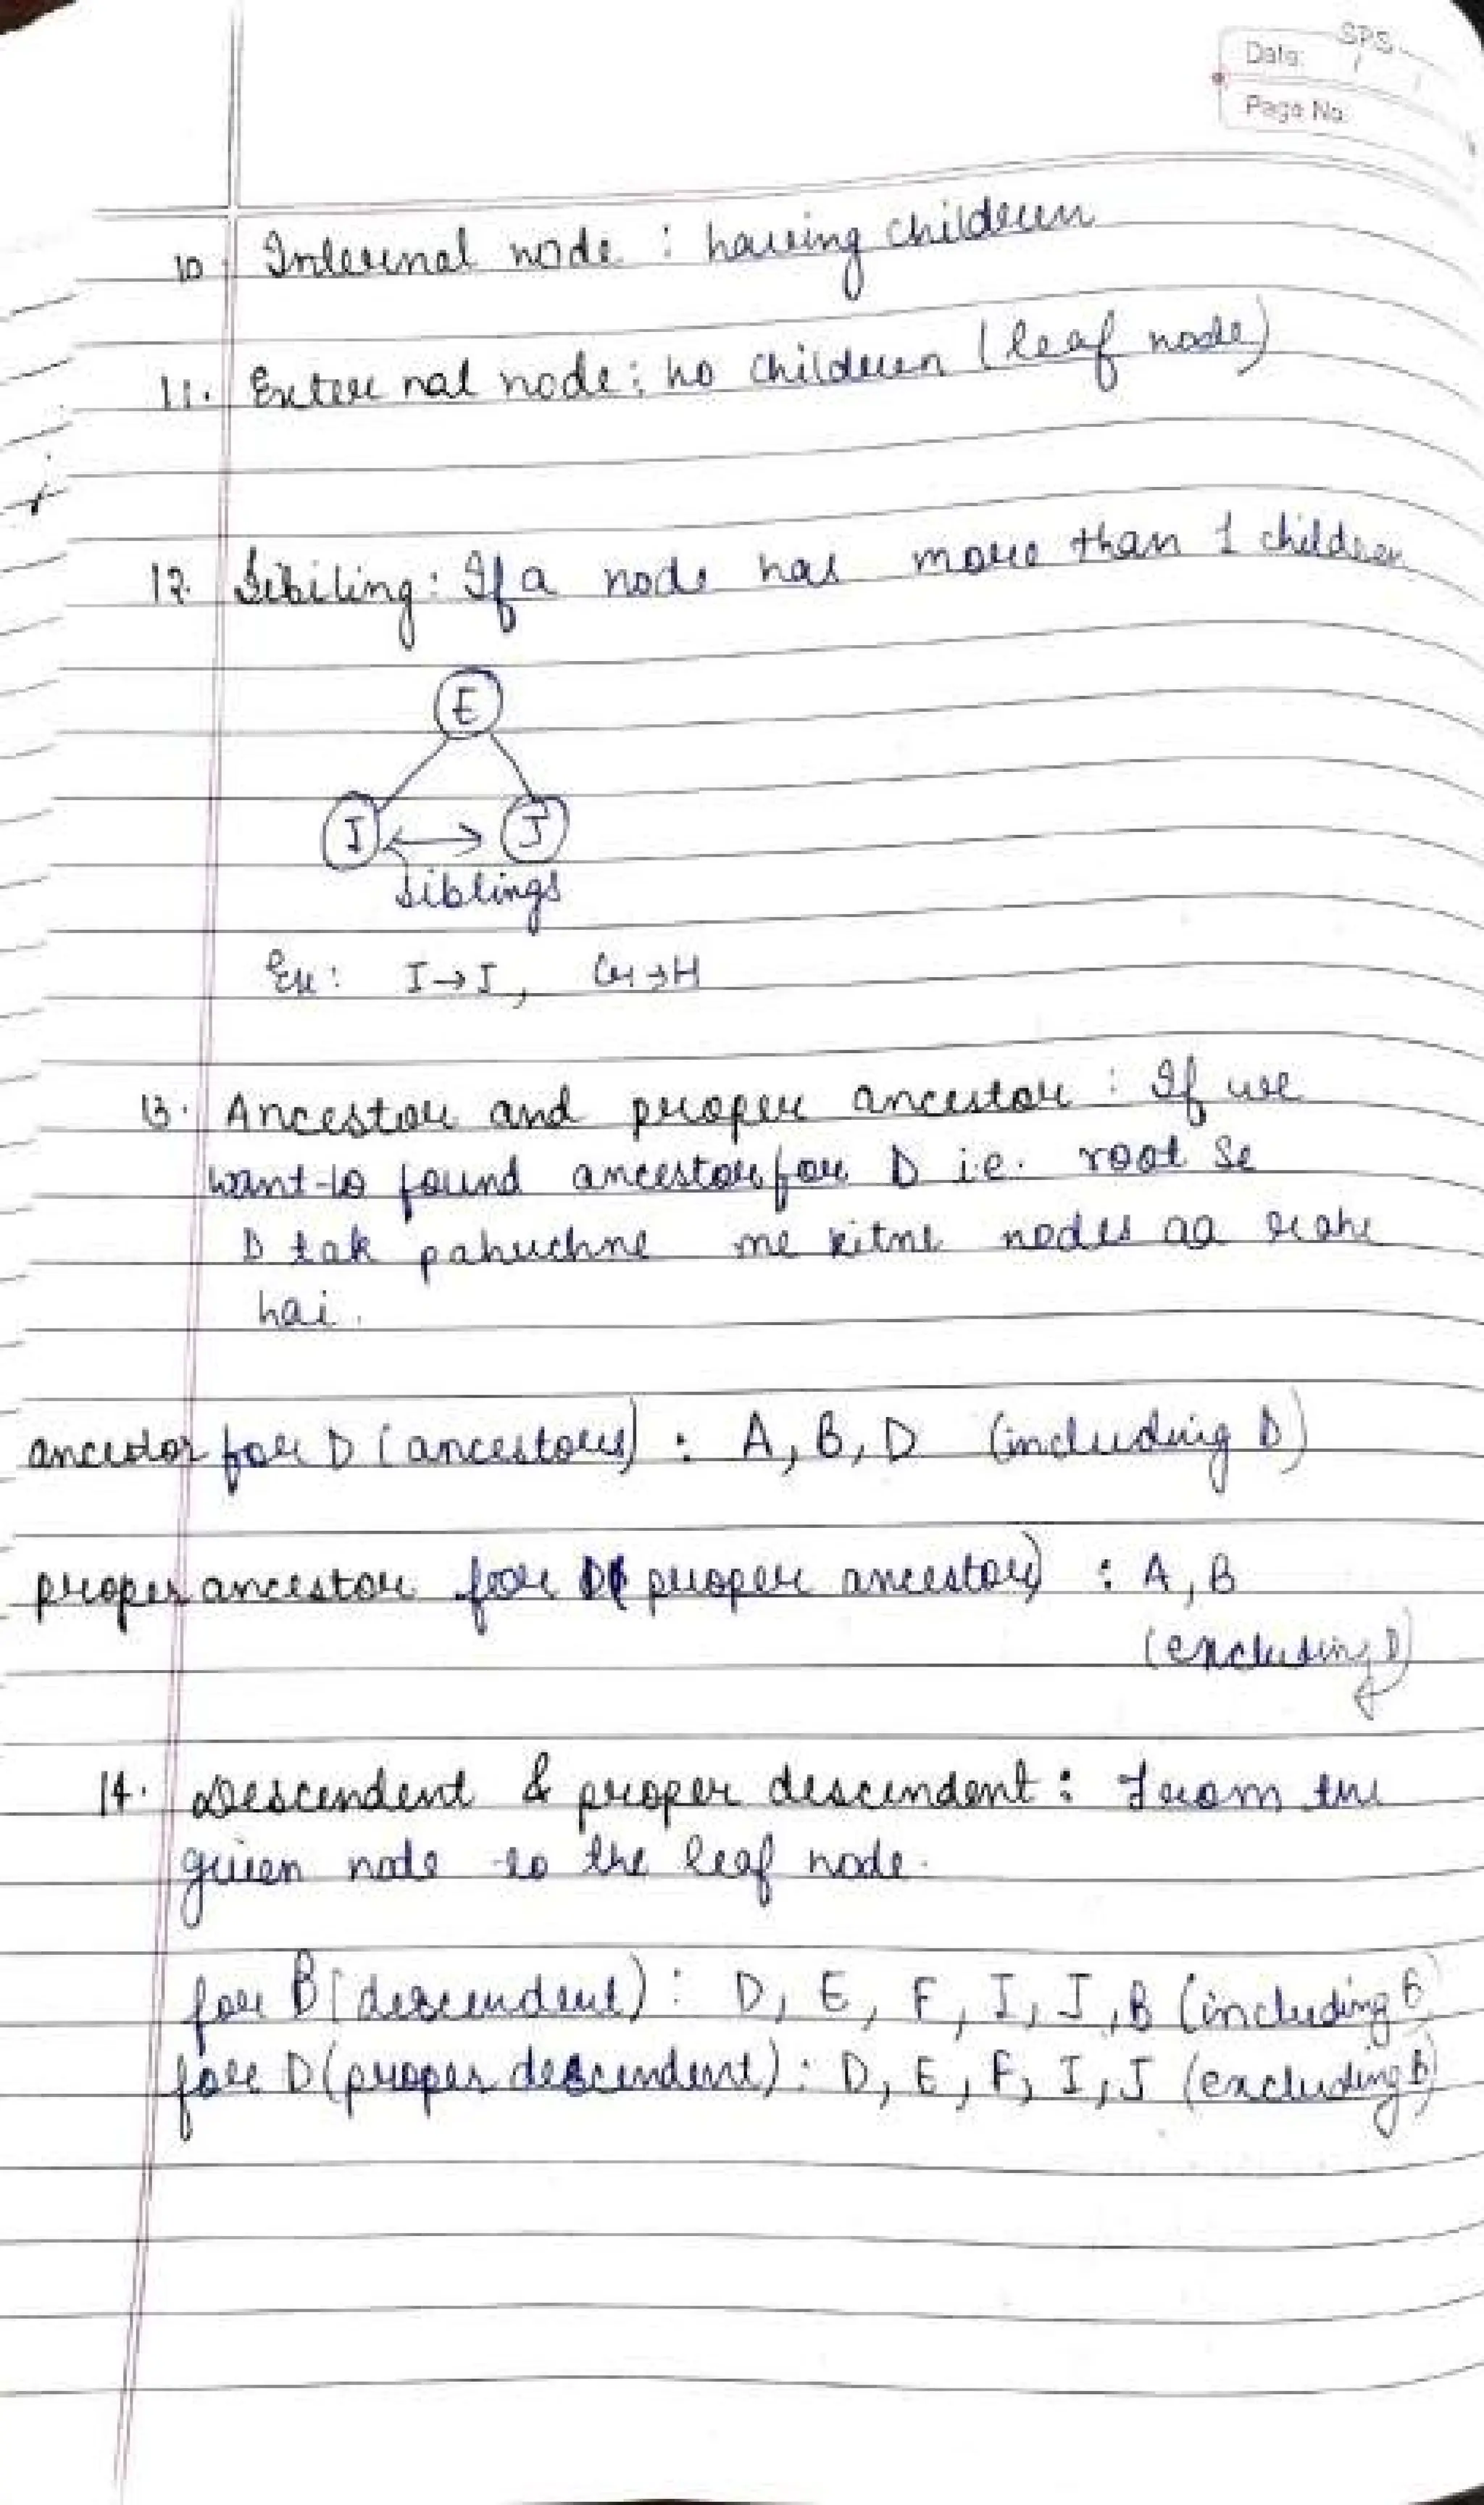 SPS
Date: / /
Page No.
10. Internal node : having children
11. Exter nal node : no children (leaf node)
12. Sibiling : If a node has more than 1 children
E
I J
siblings
Ex: I→J, G→H
13. Ancestor and proper ancestor : If we
want to found ancestor for D i.e. root se
D tak pahuchne me kitne nodes aa rahe
hai.
ancestor for D (ancestors) : A, B, D (including D)
proper ancestor for D( proper ancestor) : A, B
(excluding D)
14. Descendent & proper descendent : From the
given node to the leaf node.
for B (descendent) : D, E, F, I, J, B (including B)
for D (proper descendent) : D, E, F, I, J (excluding B)